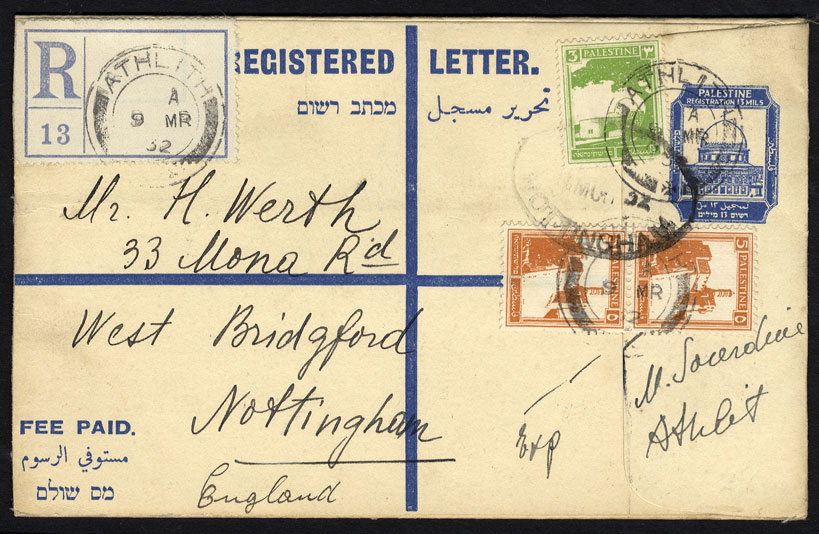 R
13
ATHLITH
A
9 MR
32
REGISTERED LETTER.
מכתב רשום
تحرير مسجل
3 PALESTINE ٣
ATHLITH
A
MR
PALESTINE
REGISTRATION 13 MILS
تسجيل ١٣ مل
רשום 13 מילים
NOTTINGHAM
32
Mr. H. Werth
33 Mona Rd
West Bridgford
Nottingham
England
PALESTINE
5 PALESTINE
9 MR
32
Exp
M. Sourdine
Athlit
FEE PAID.
مستوفي الرسوم
מס שולם